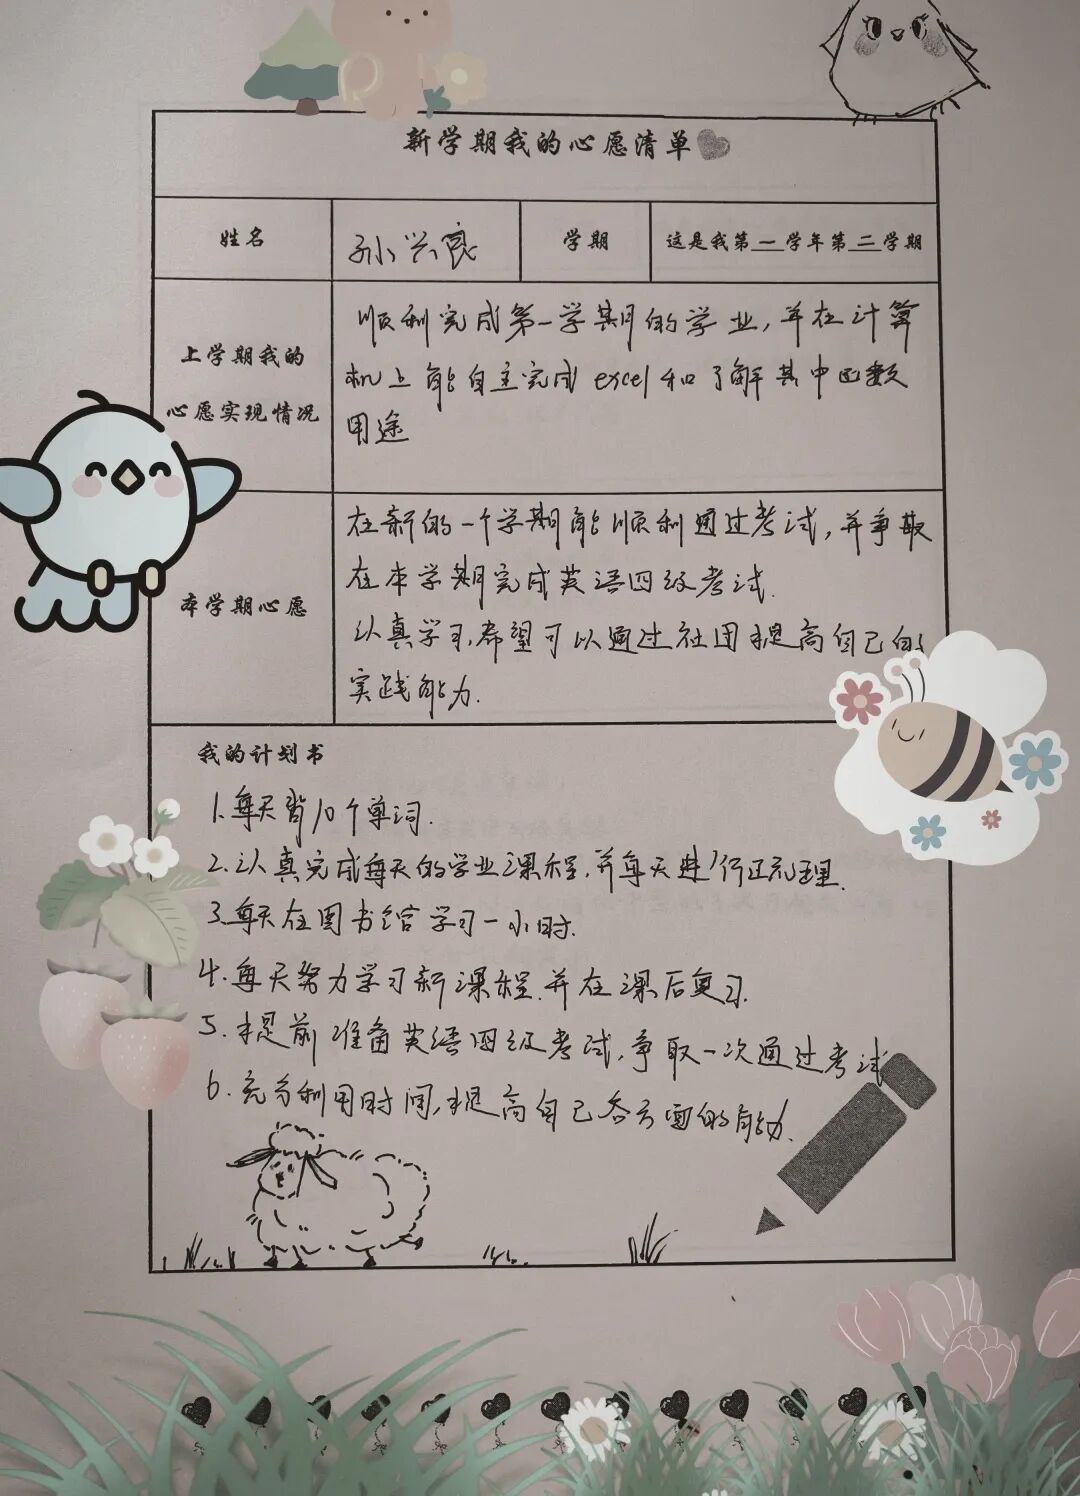 新学期我的心愿清单
姓名 孙兴良 学期 这是我第一学年第二学期
上学期我的
心愿实现情况
顺利完成第一学期的学业,并在计算
机上能自主完成excel和了解其中函数
用途
本学期心愿
在新的一个学期能顺利通过考试,并争取
在本学期完成英语四级考试.
认真学习,希望可以通过社团提高自己的
实践能力.
我的计划书
1.每天背10个单词.
2.认真完成每天的学业课程,并每天进行正理.
3.每天在图书馆学习一小时.
4.每天努力学习新课程.并在课后复习.
5.提前准备英语四级考试,争取一次通过考试
6.充分利用时间,提高自己各方面的能力.